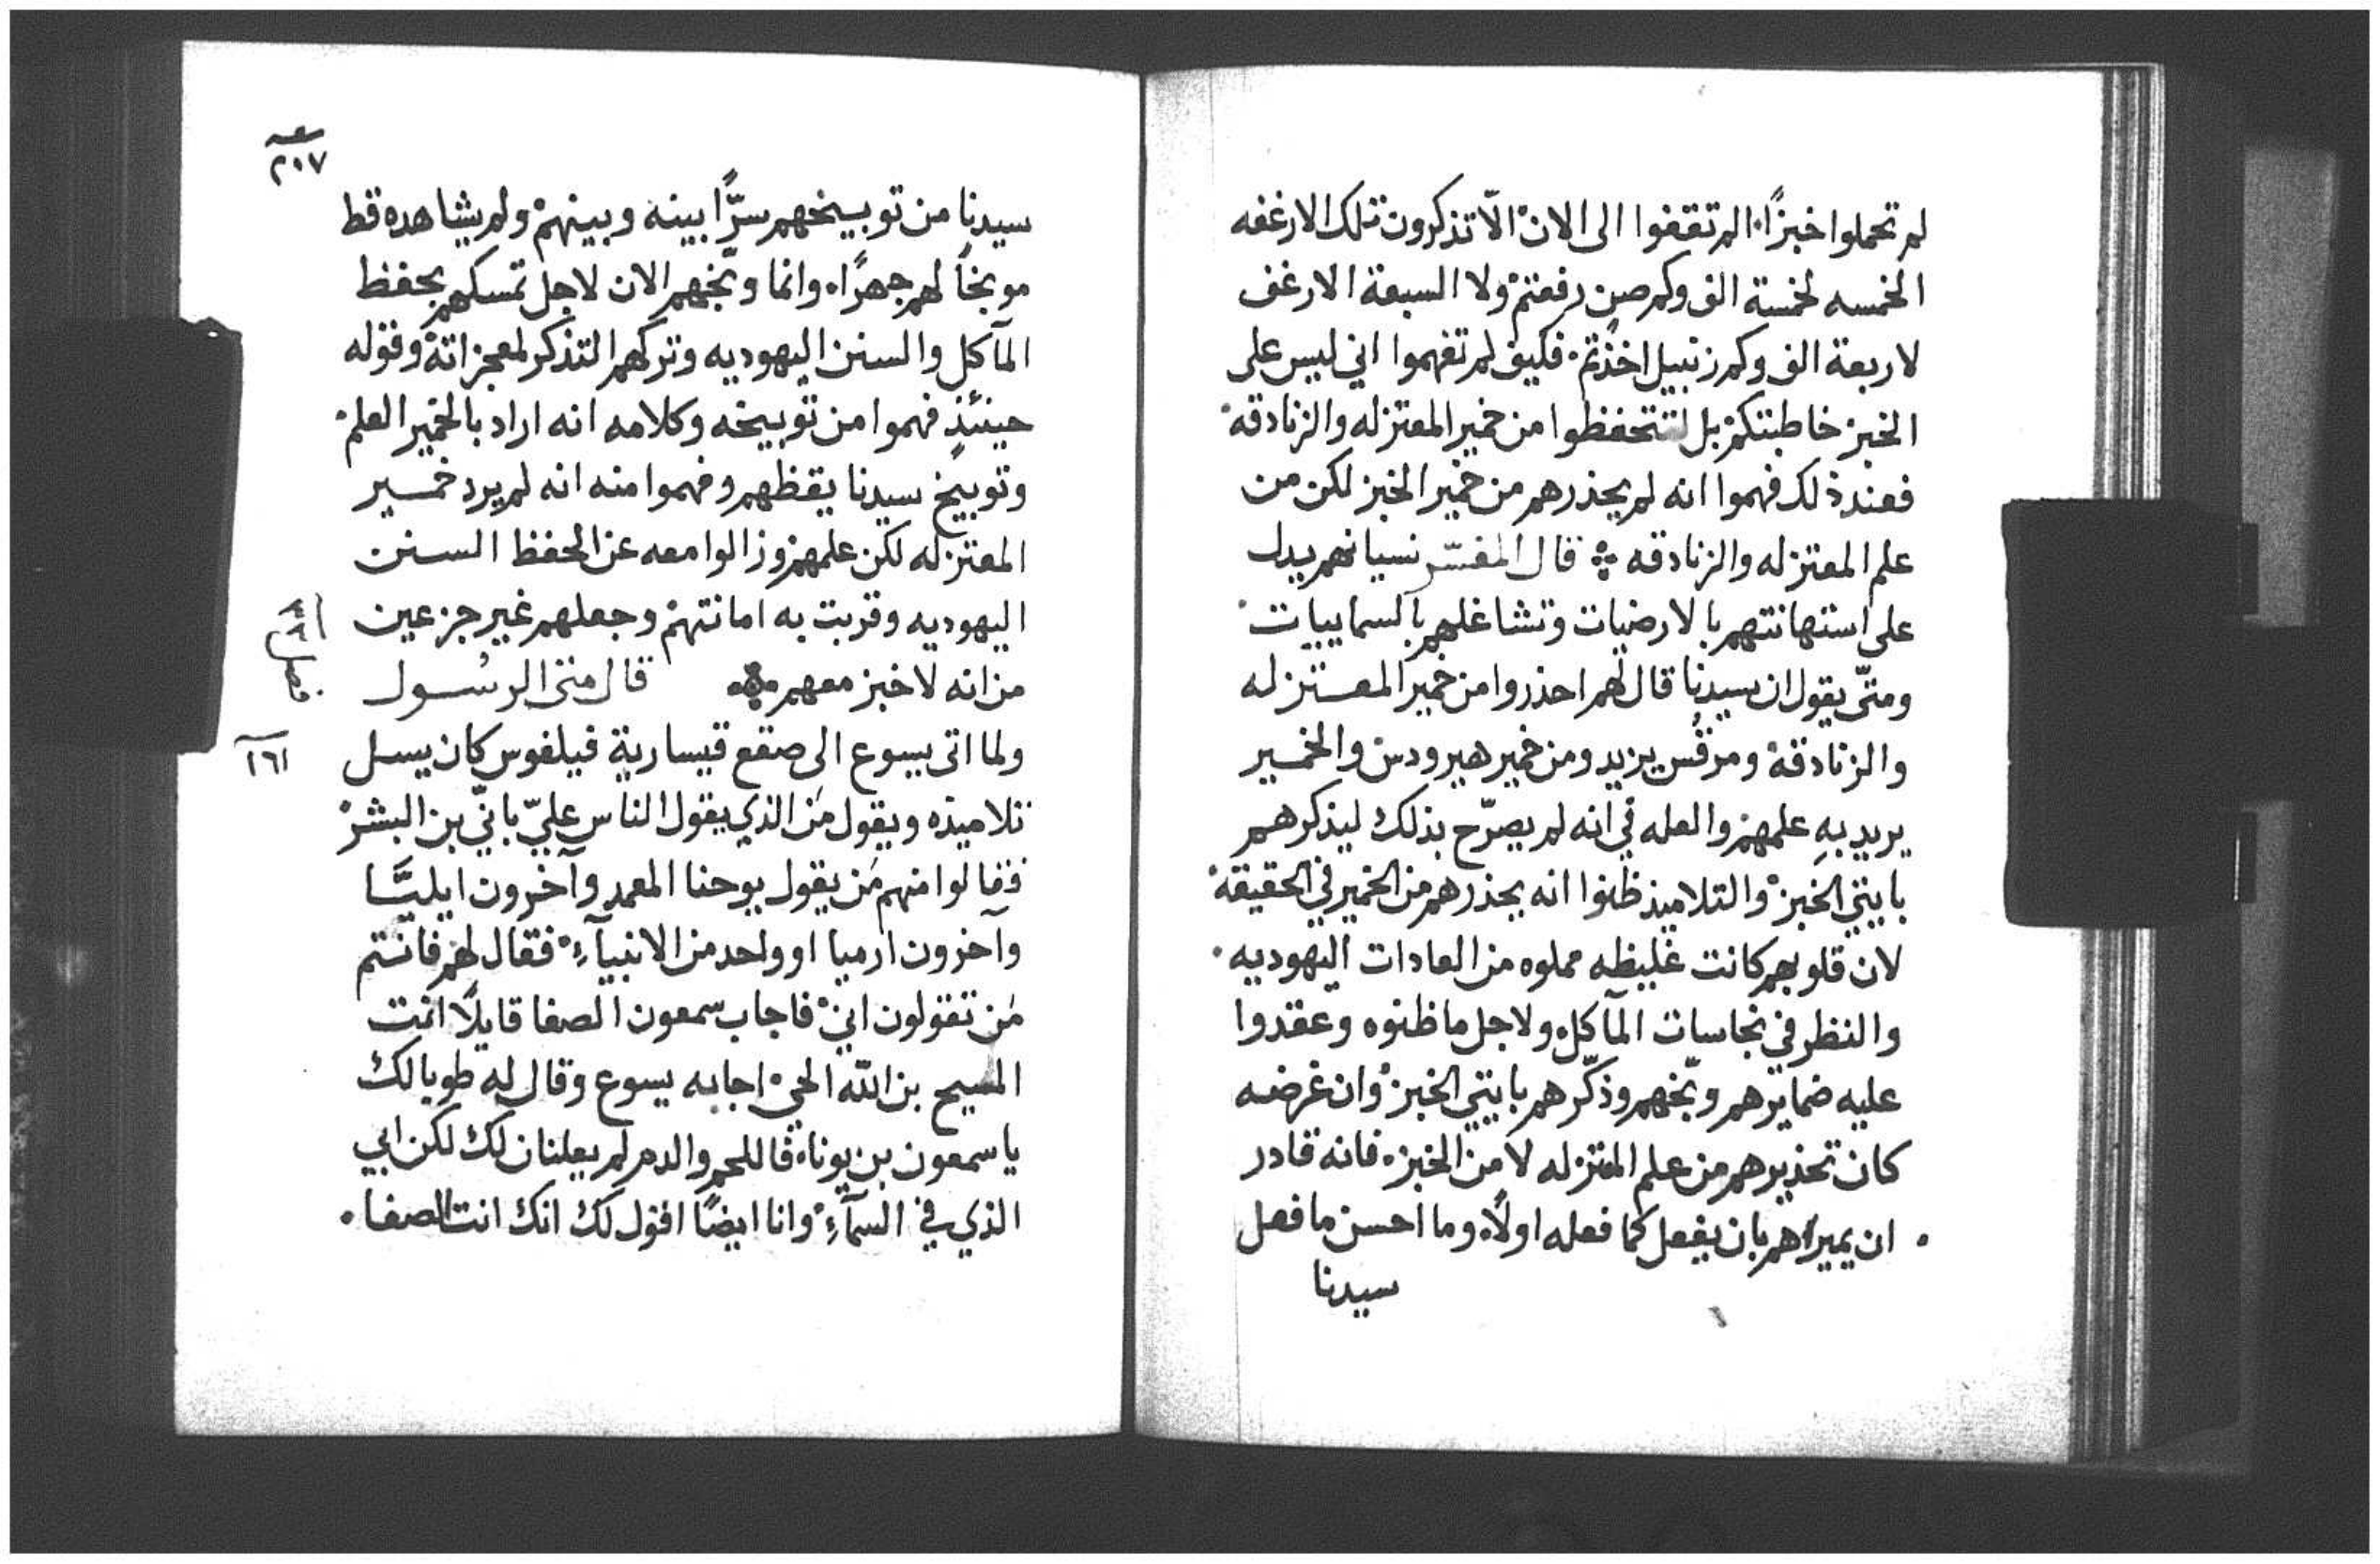 لم تحملوا خبزًا. الم تقفوا الى الان الّا تذكرون تلك الارغفه
الخمسه لخمسة الف وكم صن رفعتم ولا السبعة الارغف
لاربعة الف وكم زنبيل اخذتم. فكيف لم تفهموا اني ليس على
الخبز خاطبتكم بل لتتحفظوا من خمير المعتزله والزنادقه.
فعند ذلك فهموا انه لم يحذرهم من خمير الخبز لكن من
علم المعتزله والزنادقه ܀ قال المفسّر نسيانهم يدل
على استهانتهم بالارضيات وتشاغلهم بالسماييات.
ومتّى يقول ان سيدنا قال لهم احذروا من خمير المعتزله
والزنادقه ومرقُس يزيد ومن خمير هيرودس والخمير
يريد بهِ علمهم والعله في انه لم يصرّح بذلك ليذكرهم
بايتي الخبز والتلاميذ ظنوا انه يحذرهم من الخمير في الحقيقه.
لان قلوبهم كانت غليظه مملوه من العادات اليهوديه.
والنظر في نجاسات المآكل ولاجل ما ظنوه وعقدوا
عليه ضمايرهم وبّخهم وذكّرهم بايتي الخبز وان غرضه
كان تحذيرهم من علم المعتزله لا من الخبز. فانه قادر
ان يميراهم بان يفعل كما فعله اولًا. وما احسن ما فعل
سيدنا
٢٠٧
سيدنا من توبيخهم سرًّا بينه وبينهم ولم يشاهده قط
موبخًا لهم جهرًا. وانما وبّخهم الان لاجل تمسكهم بحفظ
المآكل والسنن اليهوديه وتركهم التذكر لمعجزاته وقوله
حينئذٍ فهموا من توبيخه وكلامه انه اراد بالخمير العلم.
وتوبيخ سيدنا يقظهم وفهموا منه انه لم يرد خمير
المعتزله لكن علمهم وزالوا معه عن الحفظ السنن
اليهوديه وقربت به امانتهم وجعلهم غير جزعين
من انه لا خبز معهم ܀ قال متى الرسُول
١٦١ ولما اتى يسوع الى صقع قيسارية فيلفوس كان يسل
تلاميذه ويقول مَن الذي يقول الناس عليّ بانّي بن البشر
فقالوا منهم مَن يقول يوحنا المعمد وآخرون ايليَّا
وآخرون ارميا او واحد من الانبيآءِ. فقال لهم فانتم
مَن تقولون اني. فاجاب سمعون الصفا قايلًا انت
المسيح بن الله الحي. اجابه يسوع وقال له طوبا لك
يا سمعون بن يونا. فاللحم والدم لم يعلنان لك لكن ابي
الذي في السمآءِ. وانا ايضًا اقول لك انك انت الصفا.